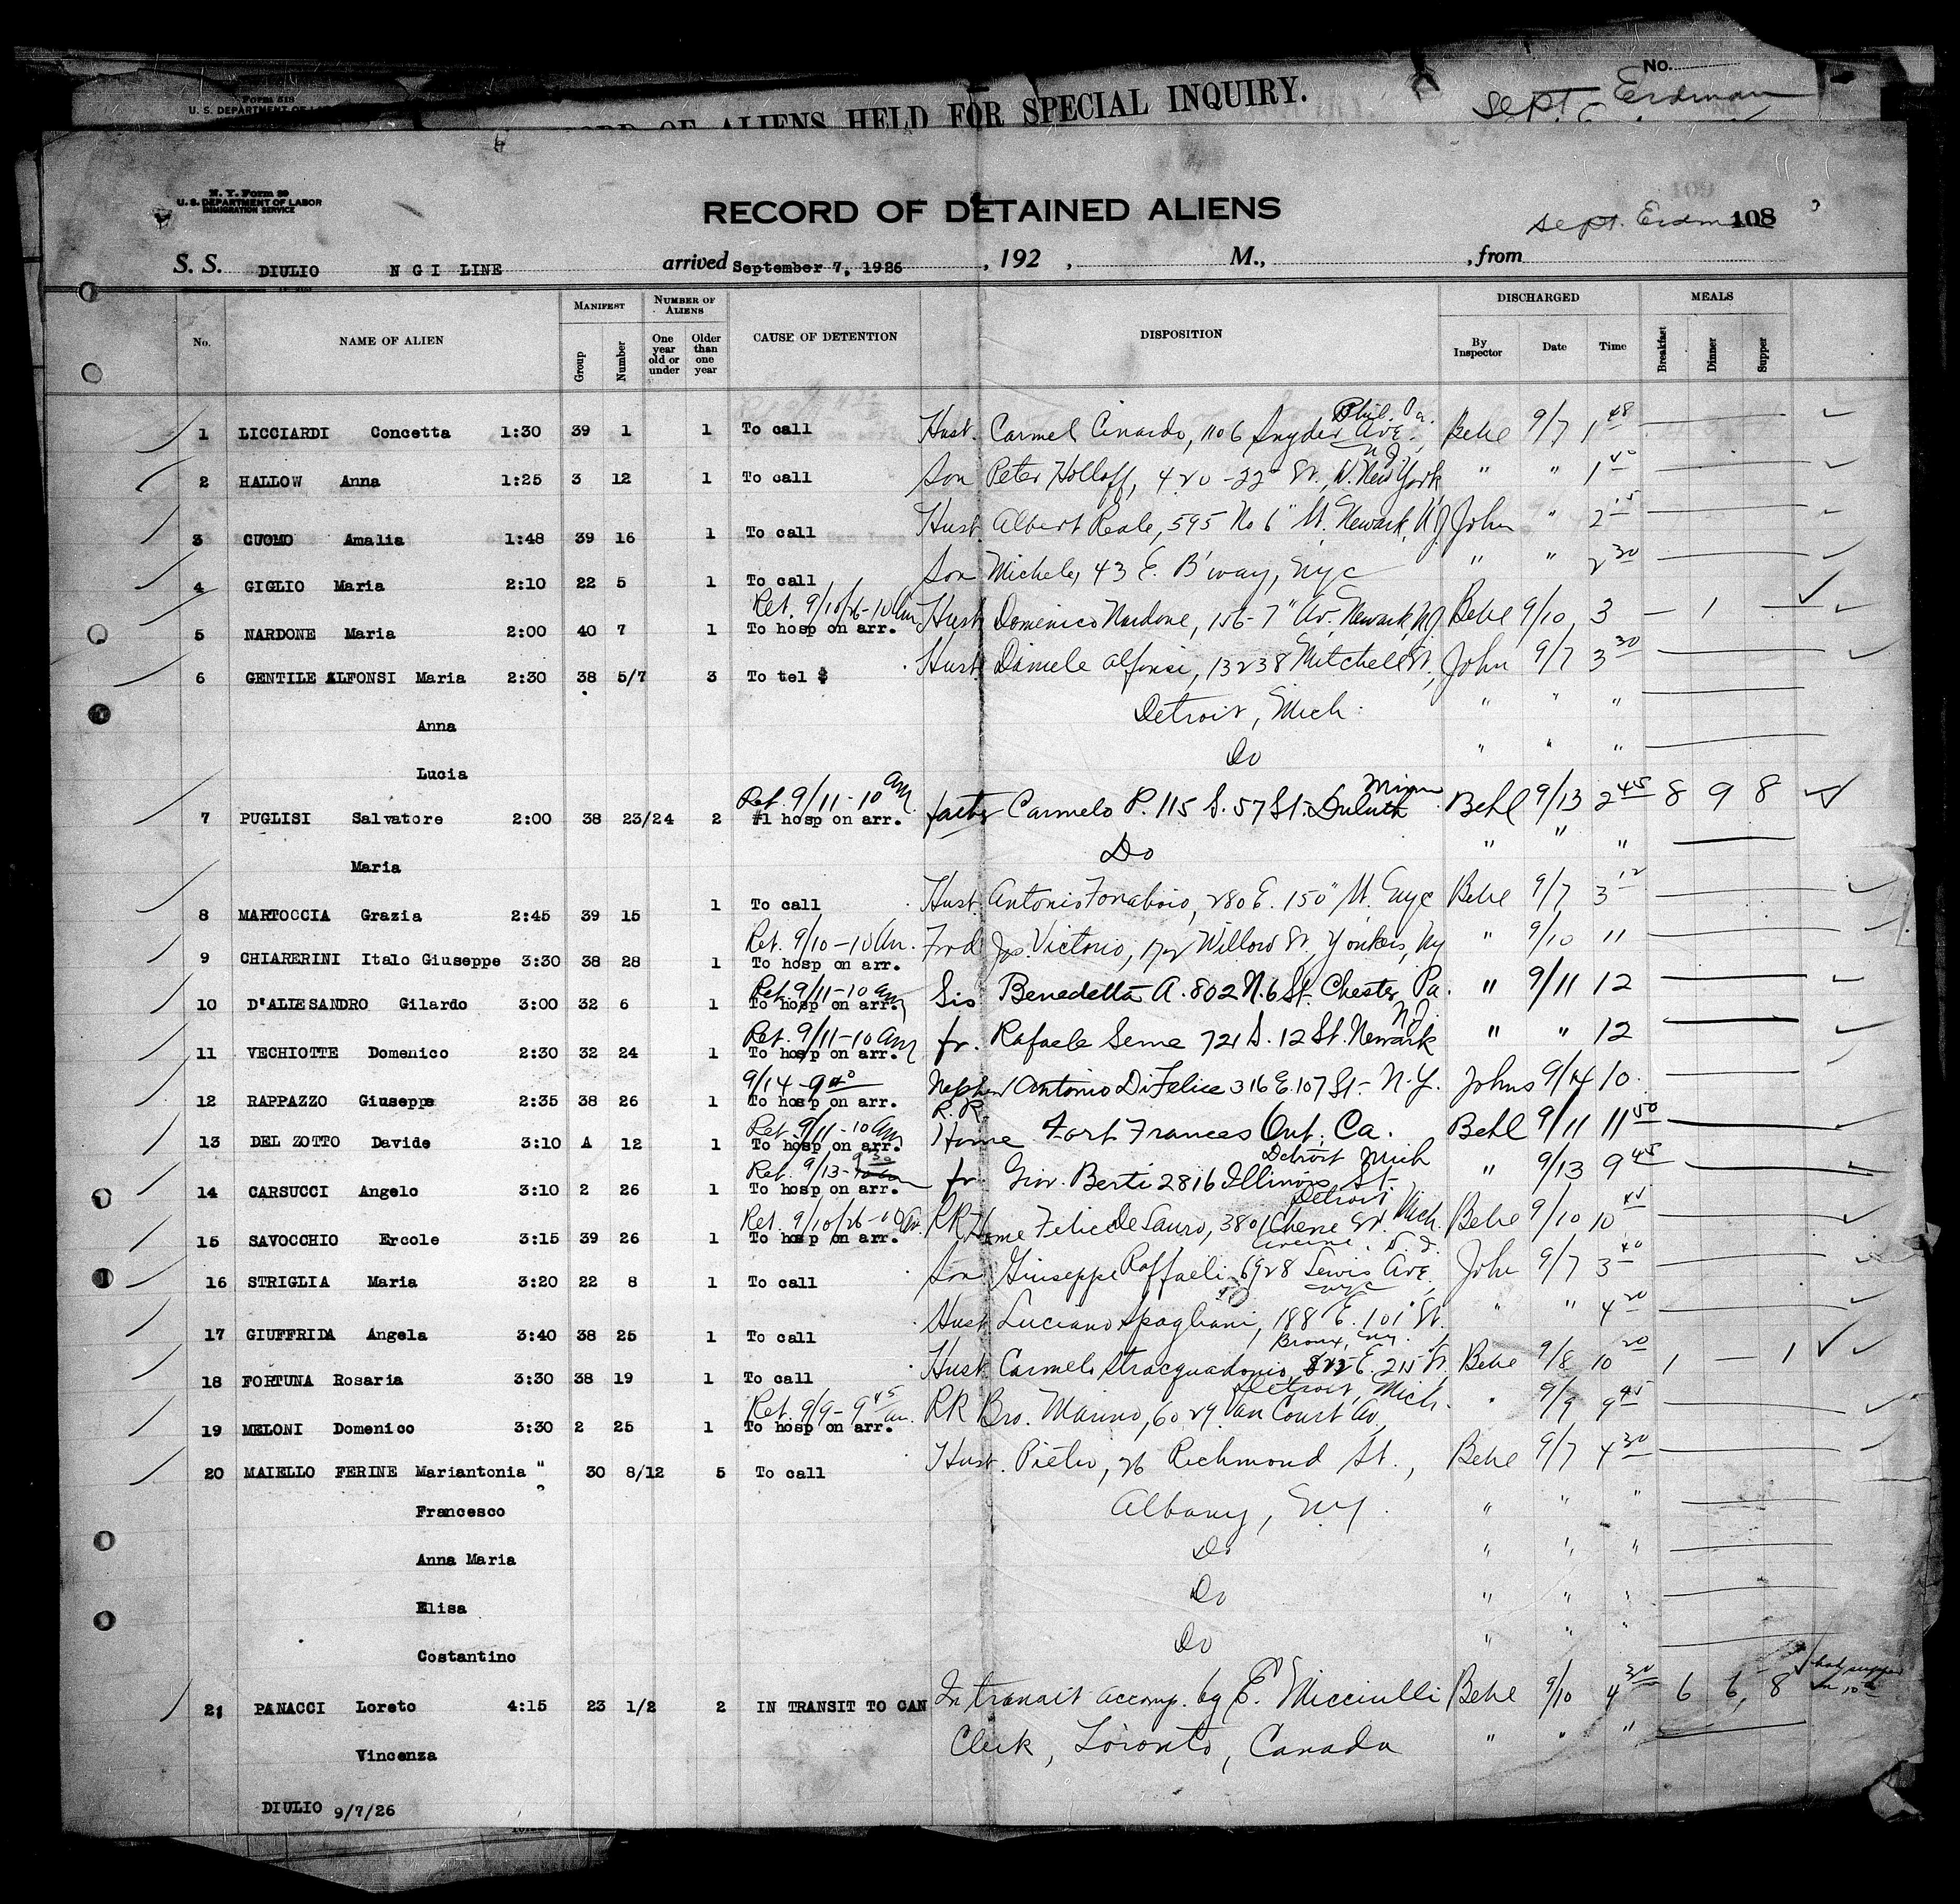 Form 518
U. S. DEPARTMENT OF LA
No.
OF ALIENS HELD FOR SPECIAL INQUIRY.
Sept. Erdman
N. Y. Form 50
U. S. DEPARTMENT OF LABOR
IMMIGRATION SERVICE
RECORD OF DETAINED ALIENS
109
Sept. Erdm 108
S. S. DIULIO N G I LINE arrived September 7, 1926, 192 , M., , from
No. NAME OF ALIEN MANIFEST Group Number NUMBER OF ALIENS One year old or under Older than one year CAUSE OF DETENTION DISPOSITION DISCHARGED By Inspector Date Time MEALS Breakfast Dinner Supper
Phil. Pa.
1 LICCIARDI Concetta 1:30 39 1 1 To call Hust. Carmel Cinardo, 1106 Snyder Ave. Behl 9/7 1 48
N.J.
2 HALLOW Anna 1:25 3 12 1 To call Son Peter Holloff, 420 - 22" St., W. New York " " 1 40
3 CUOMO Amalia 1:48 39 16 1 To call Hust Albert Reale, 595 No 6" St. Newark, NJ John " 2 15
4 GIGLIO Maria 2:10 22 5 1 To call Son Michele, 43 E. B'way, Nyc " " 2 30
Ret. 9/10/26-10 Am
5 NARDONE Maria 2:00 40 7 1 To hosp on arr. Hust Domenico Nardone, 156-7" Av. Newark NJ Behl 9/10 3 — 1 —
6 GENTILE ALFONSI Maria 2:30 38 5/7 3 To tel $ Hust Daniele Alfonsi, 13238 Mitchell St., John 9/7 3 30
Anna Detroit, Mich. " " "
Lucia Do " " "
Ret. 9/11-10 am Minn
7 PUGLISI Salvatore 2:00 38 23/24 2 #1 hosp on arr. father Carmelo P. 115 S. 57 St. Duluth Behl 9/13 2 45 8 9 8
Maria Do " " "
8 MARTOCCIA Grazia 2:45 39 15 1 To call Hust. Antonio 280 E. 150" St. Nyc Behl 9/7 3 12
Ret. 9/10-10 Am.
9 CHIARERINI Italo Giuseppe 3:30 38 28 1 To hosp on arr. Frd Jos. Victorio, 172 Willow St, Yonkers, Ny " 9/10 11
Ret 9/11-10 am
10 D'ALIESANDRO Gilardo 3:00 32 6 1 To hosp on arr. Sis Benedetta A. 802 N. 6 St. Chester, Pa. " 9/11 12
Ret. 9/11-10 am N.J.
11 VECHIOTTE Domenico 2:30 32 24 1 To hosp on arr. fr. Rafaele Serne 721 S. 12 St. Newark " " 12
9/14-9 40
12 RAPPAZZO Giuseppe 2:35 38 26 1 To hosp on arr. Nephew Antonio DiFelice 316 E. 107 St - N.Y. Johns 9/14 10
Ret. 9/11-10 am R.R.
13 DEL ZOTTO Davide 3:10 A 12 1 To hosp on arr. Home Fort Frances Ont. Ca. Behl 9/11 11 50
Ret. 9/13- 9 30 Detroit Mich
14 CARSUCCI Angelo 3:10 2 26 1 To hosp on arr. fr Giov. Berti 2816 Illinois St. " 9/13 9 45
Ret. 9/10/26-10 Am Detroit
15 SAVOCCHIO Ercole 3:15 39 26 1 To hosp on arr. RR Home Felice De Sauro, 3801 St. Mich. Behl 9/10 10 45
16 STRIGLIA Maria 3:20 22 8 1 To call Son Giuseppe Raffaeli 6928 Lewis Ave. John 9/7 3 40
Nyc
17 GIUFFRIDA Angela 3:40 38 25 1 To call Hust Luciano Spagliani, 188 E. 101" St. " " 4 20
Bronx, Ny.
18 FORTUNA Rosaria 3:30 38 19 1 To call Hust Carmelo Stracquadonio, E. 215 St. Behl 9/8 10 20 1 — 1
Ret. 9/9-9 45 am. Detroit, Mich.
19 MELONI Domenico 3:30 2 25 1 To hosp on arr. RR Bro. Marino, 6029 Van Court Av, " 9/9 9 45
20 MAIELLO FERINE Mariantonia " 30 8/12 5 To call Hust. Pietro, 26 Richmond St., Behl 9/7 4 30
Francesco Albany, Ny. " " "
Anna Maria Do " " "
Elisa Do " " "
Costantino Do " " "
21 PANACCI Loreto 4:15 23 1/2 2 IN TRANSIT TO CAN In transit accomp. by E. Micciulli Behl 9/10 4 30 6 6 8 had supper on 10th
Vincenza Clerk, Toronto, Canada " " "
DIULIO 9/7/26